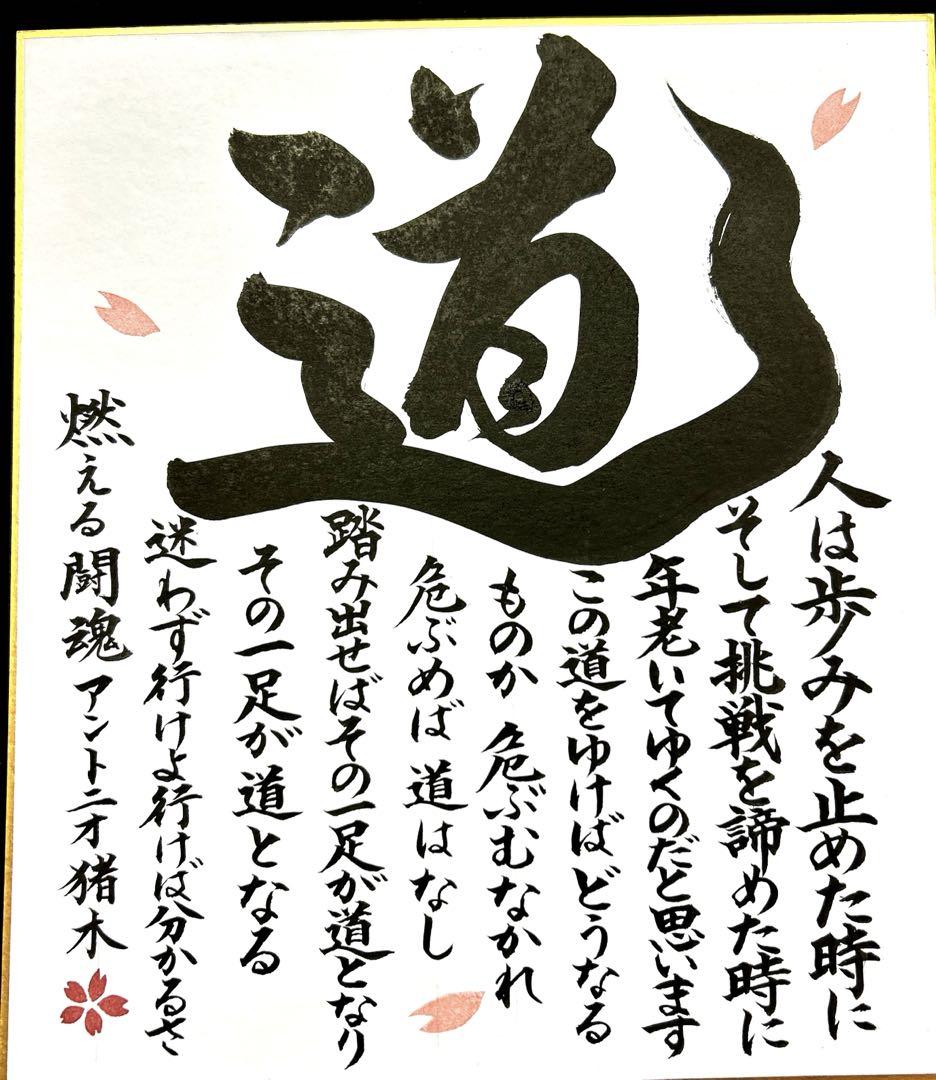 道
人は歩みを止めた時に
そして挑戦を諦めた時に
年老いてゆくのだと思います
この道をゆけばどうなる
ものか 危ぶむなかれ
危ぶめば 道はなし
踏み出せばその一足が道となり
その一足が道となる
迷わず行けよ行けば分かるさ
燃える闘魂 アントニオ猪木